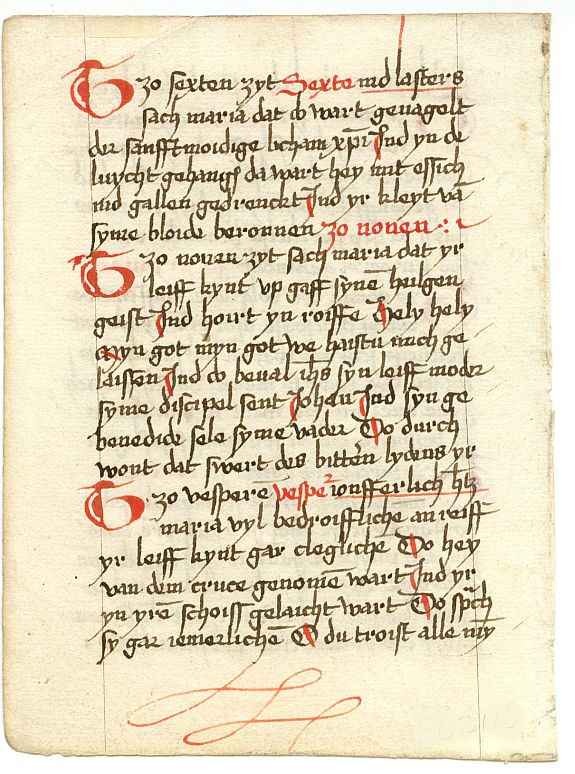 Zo sexten zyt Sexte ind lasters
sach maria dat do wart genagelt
der sanfftmoidige licham xpri Ind yn de
luycht gehangē da wart hey mit essich
ind gallen gedrenckt Ind yr kleyt vā
syme bloide beronnen zo nonen
Zo nonen zyt sach maria dat yr
leiff kynt vp gaff synē heilgen
geist Ind hoirt yn roiffe Hely hely
Myn got myn got we haistu mich ge
laissen Ind do beual ihs syn leiff moder
syme discipel sent Johan Ind syn ge
benedide sele syme vader Do durch
wont dat swert des bitterē lydens yr
Zo vesperē vesper ionfferlich htz
maria vyl bedroiffliche an reiff
yr leiff kynt gar clegliche Do hey
van dem cruce genomē wart Ind yr
yn yrē schoiss gelaicht wart Do sprch
sy gar iemerlichē O du troist alle